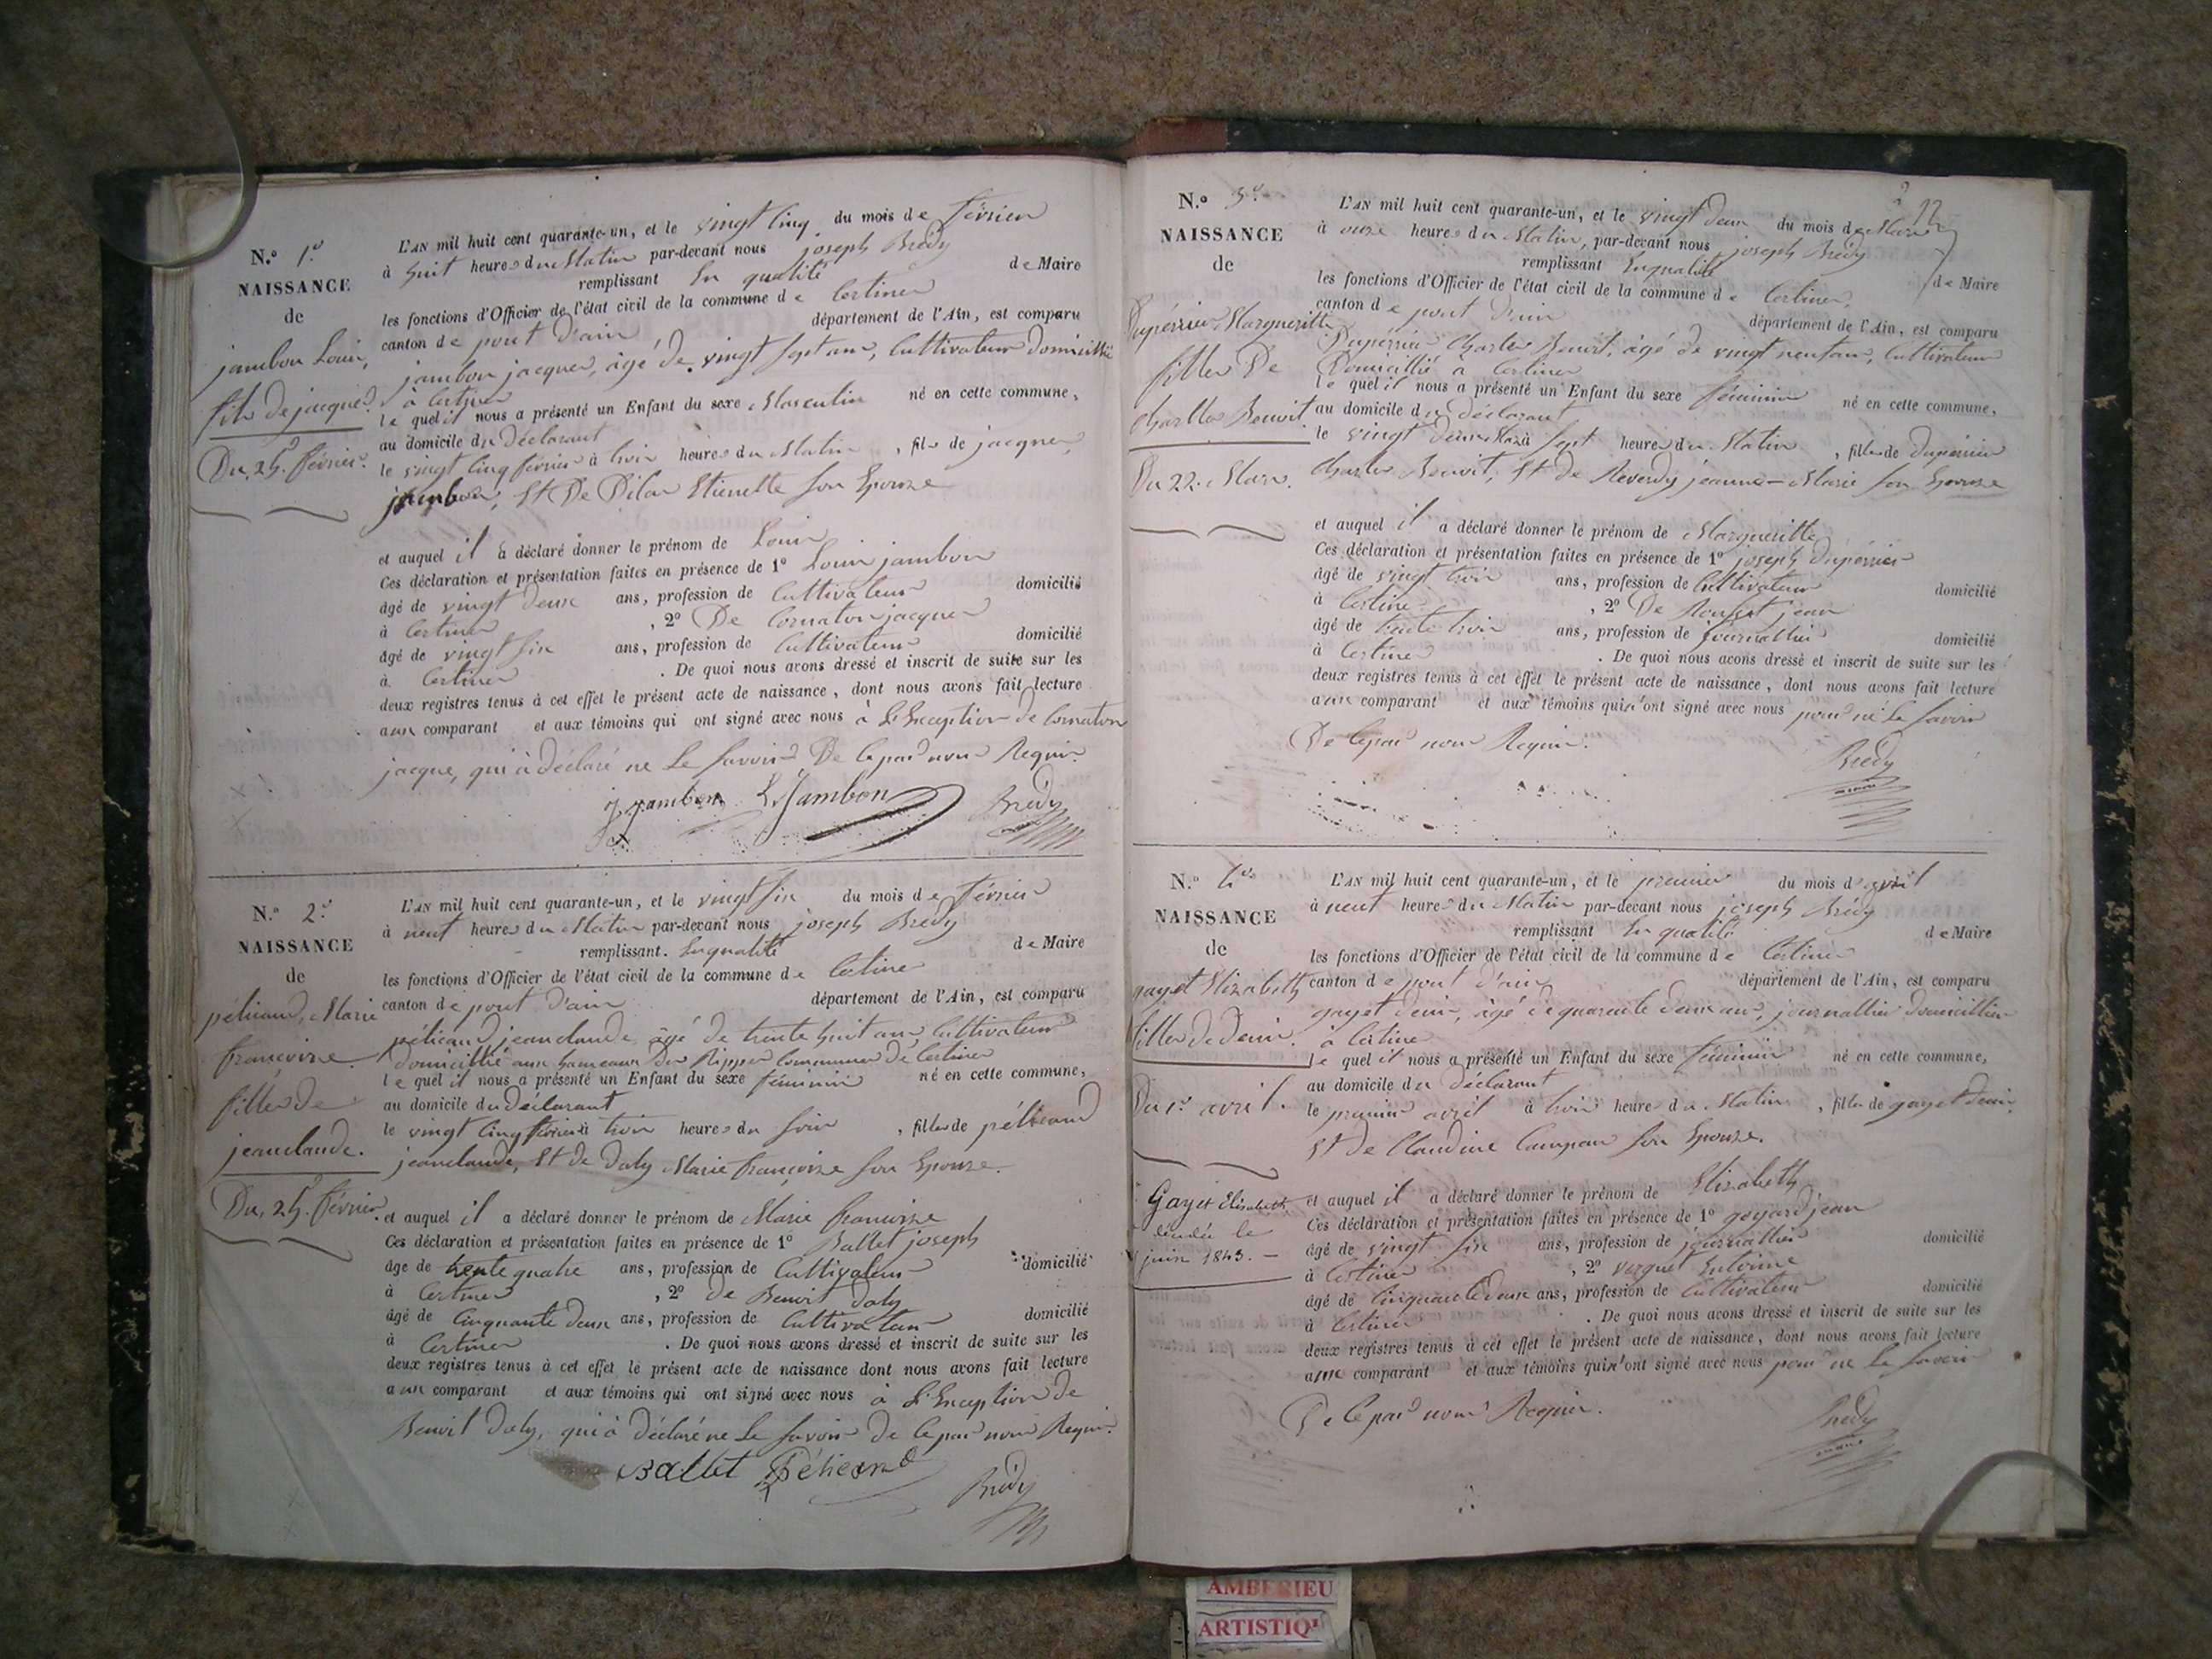 N.º 1.er
NAISSANCE
de
jambon Louis,
fils de jacques.
Du, 25. février.
L'AN mil huit cent quarante-un, et le vingt cinq du mois de février
à huit heures du Matin par-devant nous joseph Brédy
remplissant En qualité de Maire
les fonctions d'Officier de l'état civil de la commune de Certines
canton de pont d'ain département de l'Ain, est comparu
jambon jacques, âgé de vingt sept ans, Cultivateur domicillié
à Certines
le quel il nous a présenté un Enfant du sexe Masculin né en cette commune,
au domicile du déclarant
le vingt cinq février à trois heures du Matin, fils de jacques
jambon, Et De Pilon Etiennette son Epouse
et auquel il a déclaré donner le prénom de Louis
Ces déclaration et présentation faites en présence de 1º Louis jambon
âgé de vingt deux ans, profession de Cultivateur domicilié
à Certines, 2º De Cornaton jacques
âgé de vingt six ans, profession de Cultivateur domicilié
à Certines. De quoi nous avons dressé et inscrit de suite sur les
deux registres tenus à cet effet le présent acte de naissance, dont nous avons fait lecture
aux comparant et aux témoins qui ont signé avec nous à L'Exception de Cornaton
jacque, qui à déclaré ne Le savoir De Ce par nous Requis.
J. jambon L. Jambon Brédy
N.º 2.e
NAISSANCE
de
Marie
francoise
filles de
jeanclaude.
Du, 25. février.
L'AN mil huit cent quarante-un, et le vingt six du mois de février
à neuf heures du Matin par-devant nous joseph Brédy
remplissant. En qualité de Maire
les fonctions d'Officier de l'état civil de la commune de Certine
canton de pont d'ain département de l'Ain, est comparu
jeanclaude âgé de trente huit ans Cultivateur
domicillié aux hameaux des Rippes Communes de Certines
le quel il nous a présenté un Enfant du sexe féminin né en cette commune,
au domicile du déclarant
le vingt cinq février à trois heures du soir, filles de
jeanclaude, Et de Daly Marie françoise son Epouse.
et auquel il a déclaré donner le prénom de Marie francoise
Ces déclaration et présentation faites en présence de 1º Ballet joseph
âge de trente quatre ans, profession de Cultivateur domicilié
à Certines, 2º de Benoit Daly
âgé de Cinquante deux ans, profession de Cultivateur domicilié
à Certines. De quoi nous avons dressé et inscrit de suite sur les
deux registres tenus à cet effet le présent acte de naissance dont nous avons fait lecture
aux comparant et aux témoins qui ont signé avec nous à L'Exception de
Benoit Daly, qui à déclaré ne Le savoir de Ce par nous Requis.
Ballet Brédy
22
N.º 3.e
NAISSANCE
de
Dupérrier Margueritte
filles De
Charles Benoit
Du 22. Mars.
L'AN mil huit cent quarante-un, et le vingt deux du mois de Mars
à onze heures du Matin, par-devant nous joseph Brédy
remplissant En qualité de Maire
les fonctions d'Officier de l'état civil de la commune de Certines.
canton de pont d'ain département de l'Ain, est comparu
Dupérrier Charles Benoit, âgé de vingt neuf ans, Cultivateur
Domicillié à Certines
le quel il nous a présenté un Enfant du sexe féminin né en cette commune,
au domicile du déclarant
le vingt deux Mars à Sept heures du Matin, filles de Dupérrier
Charles Benoit, Et de Reverdy jeanne-Marie son Epouse
et auquel il a déclaré donner le prénom de Margueritte
Ces déclaration et présentation faites en présence de 1º joseph Dupérrier
âgé de vingt trois ans, profession de Cultivateur domicilié
à Certine, 2º De jean
âgé de trente trois ans, profession de journallier domicilié
à Certines. De quoi nous avons dressé et inscrit de suite sur les
deux registres tenus à cet effet le présent acte de naissance, dont nous avons fait lecture
aux comparant et aux témoins qui n'ont signé avec nous pour ne Le savoir
De Ce par nous Requis.
Brédy
N.º 4.e
NAISSANCE
de
gayet Elizabeth
filles de Denis.
Du 1.er avril.
Gayet Elisabeth
décédée le
juin 1843. —
L'AN mil huit cent quarante-un, et le premier du mois d'avril
à neuf heures du Matin par-devant nous joseph Brédy
remplissant En qualité de Maire
les fonctions d'Officier de l'état civil de la commune de Certines
canton de pont d'ain département de l'Ain, est comparu
gayet denis, âgé de quarante deux ans, journallier domicillier
à Certine
le quel il nous a présenté un Enfant du sexe féminin né en cette commune,
au domicile du déclarant
le premier avril à trois heure du Matin, filles de gayet denis,
Et de Claudine Campan son Epouse.
et auquel il a déclaré donner le prénom de Elizabeth
Ces déclaration et présentation faites en présence de 1º goyard jean
âgé de vingt six ans, profession de journallier domicilié
à Certines, 2º Antoine
âgé de Cinquante deux ans, profession de Cultivateur domicilié
à Certines. De quoi nous avons dressé et inscrit de suite sur les
deux registres tenus à cet effet le présent acte de naissance, dont nous avons fait lecture
aux comparant et aux témoins qui n'ont signé avec nous pour ne Le savoir
De Ce par nous Requis.
Brédy
AMBERIEU
ARTISTIQU